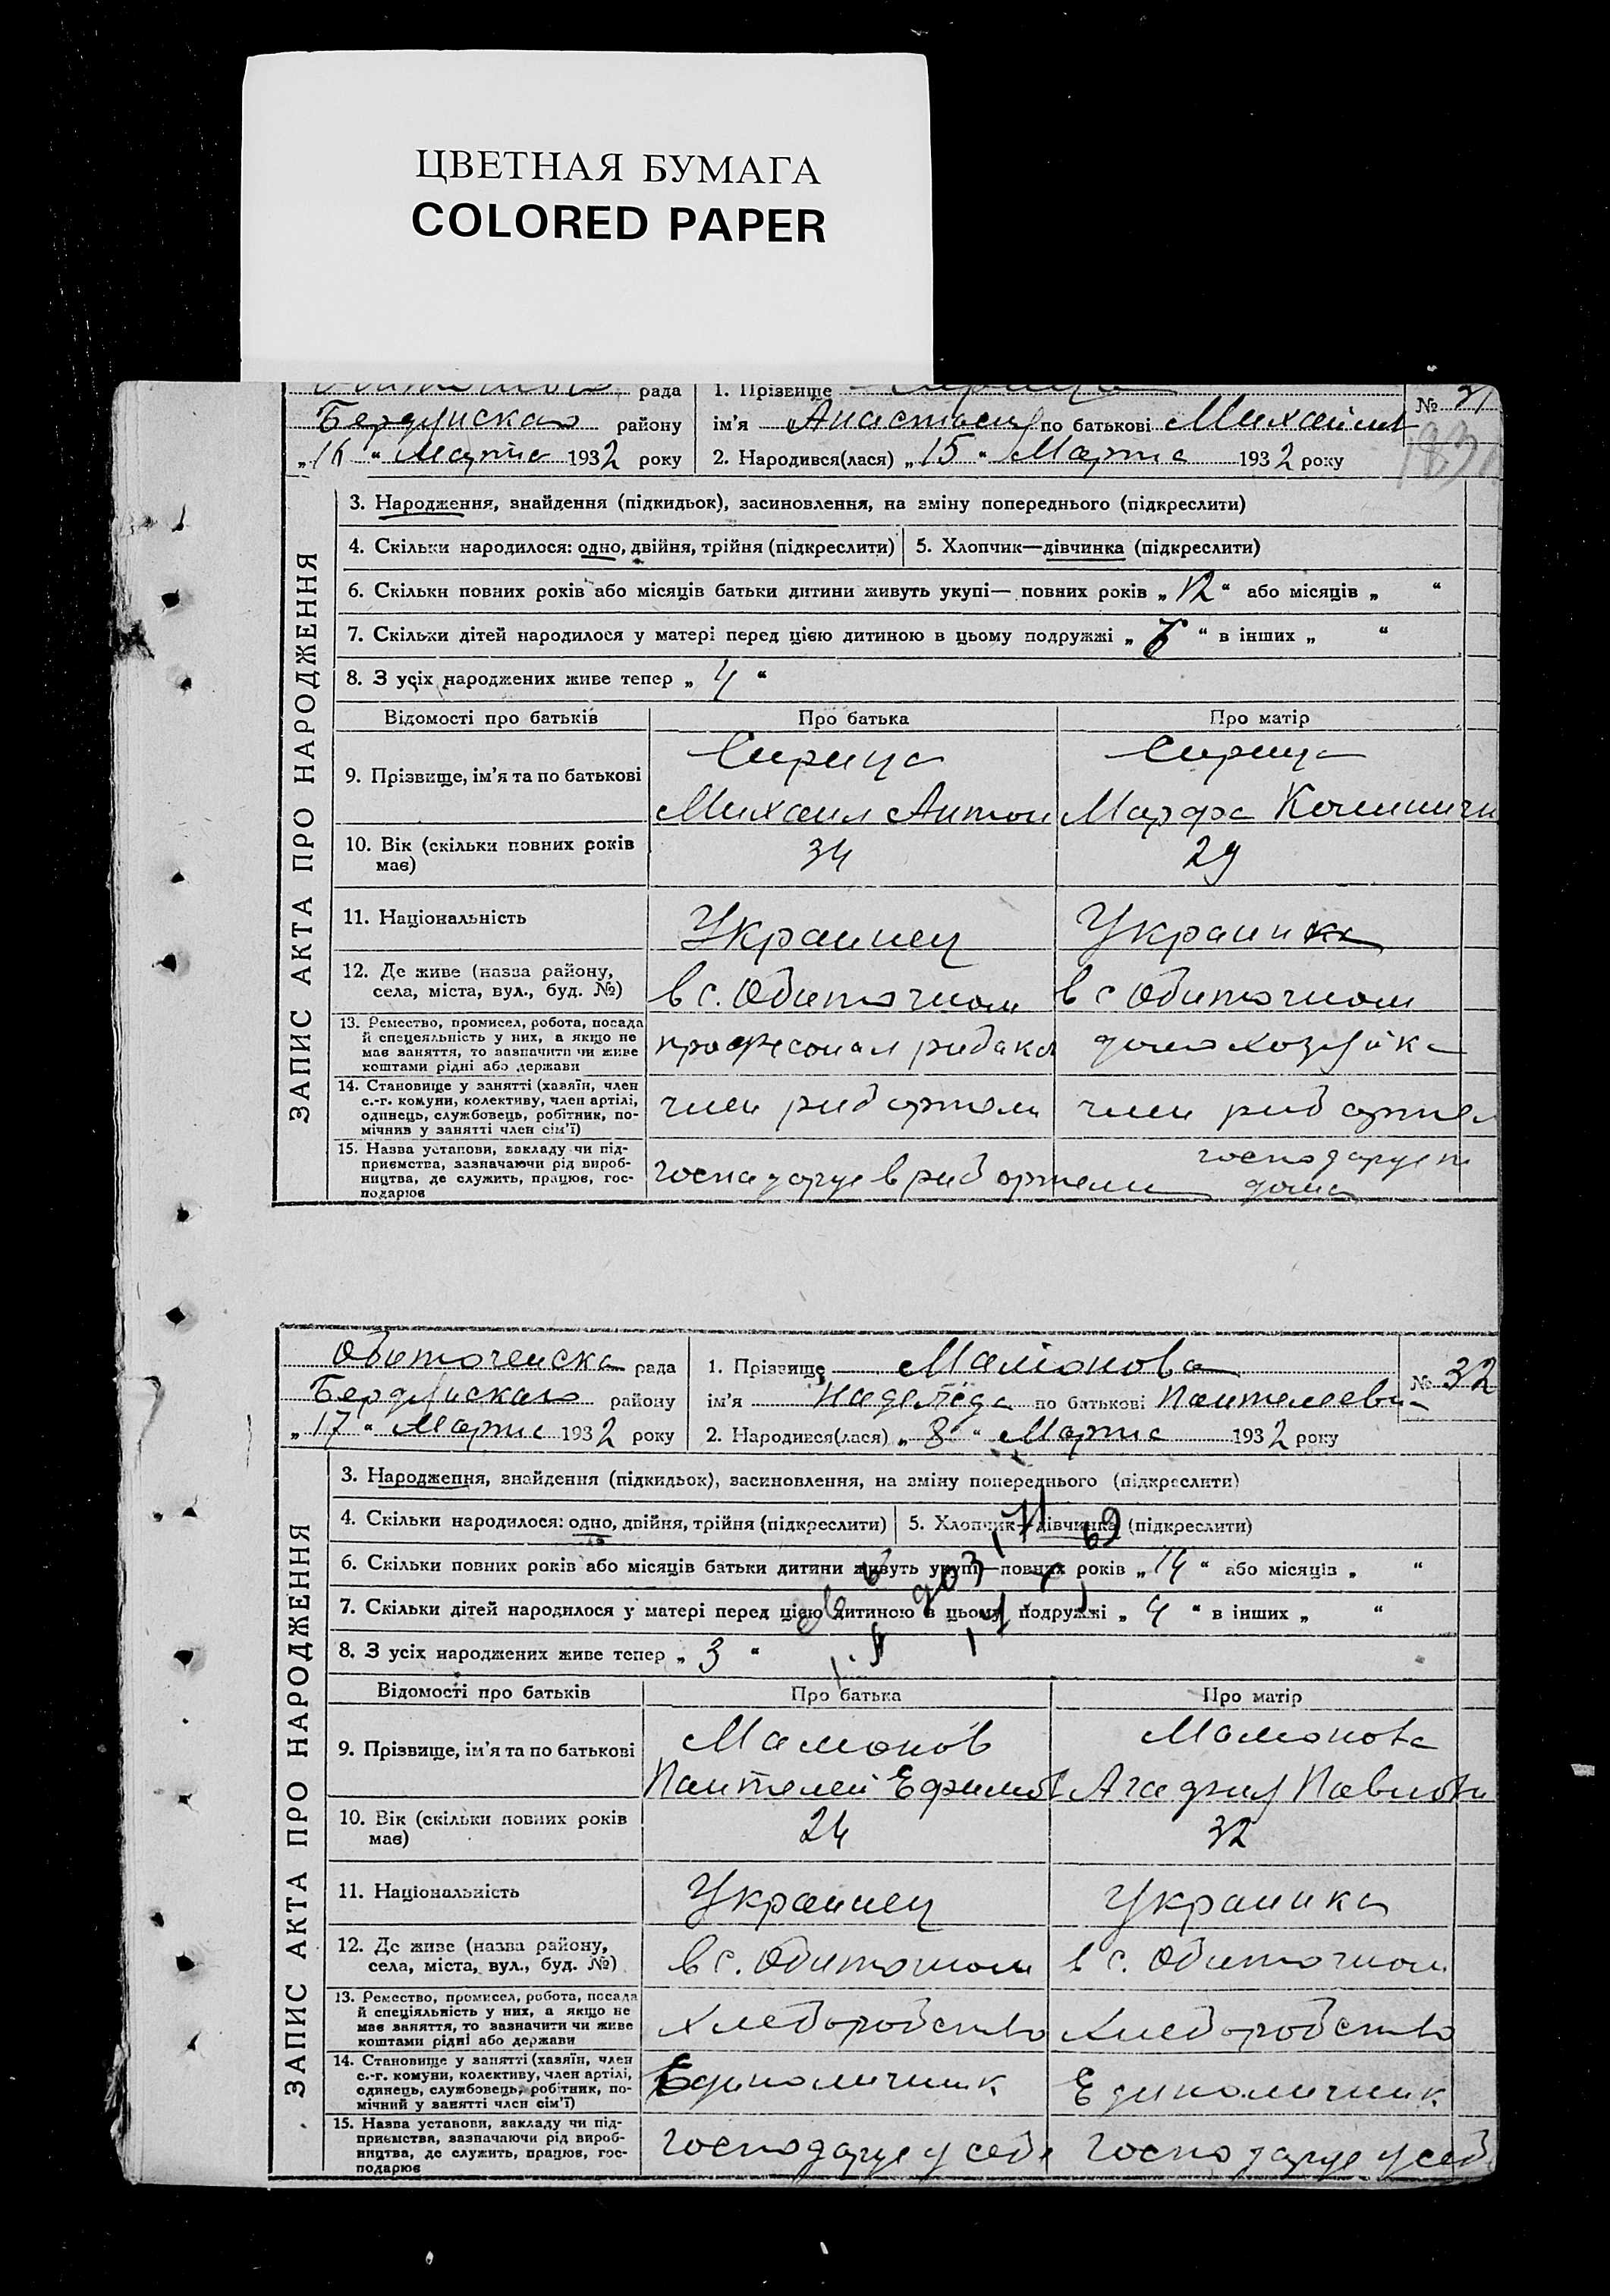 ЦВЕТНАЯ БУМАГА
COLORED PAPER
рада 1. Прізвище
Бердянскаго району ім’я Анастасия по батькові № 31
„ “ Марта 1932 року 2. Народився(лася) „15“ Марта 1932 року
ЗАПИС АКТА ПРО НАРОДЖЕННЯ
3. Народження, знайдення (підкидьок), засиновлення, на зміну попереднього (підкреслити)
4. Скільки народилося: одно, двійня, трійня (підкреслити) 5. Хлопчик—дівчинка (підкреслити)
6. Скільки повних років або місяців батьки дитини живуть укупі— повних років „12“ або місяців „ “
7. Скільки дітей народилося у матері перед цією дитиною в цьому подружжі „ “ в інших „ “
8. З усіх народжених живе тепер „4“
Відомості про батьків Про батька Про матір
9. Прізвище, ім’я та по батькові Сирица Сирица
Михаил Антон Марфа
10. Вік (скільки повних років 34 29
має)
11. Національність Украинец Украинка
12. Де живе (назва району, в с. Обиточном в с Обиточном
села, міста, вул., буд. №)
13. Ремество, промисел, робота, посада
й спецеяльність у них, а якщо не професонал рибака домохозяйка
має заняття, то зазначити чи живе
коштами рідні або держави
14. Становище у занятті (хазяїн, член
с.-г. комуни, колективу, член артілі, член риб артели член риб артел
одинець, службовець, робітник, по-
мічник у занятті член сім’ї)
15. Назва установи, закладу чи під-
приємства, зазначаючи рід вироб- господарує в риб артели
ництва, де служить, працює, гос- дома
подарює
Обиточенска рада 1. Прізвище Мамонова № 32
Бердянскаго району ім’я Надежда по батькові Пантелеевна
„17“ Марта 1932 року 2. Народився(лася) „8“ Марта 1932 року
ЗАПИС АКТА ПРО НАРОДЖЕННЯ
3. Народження, знайдення (підкидьок), засиновлення, на зміну попереднього (підкреслити)
4. Скільки народилося: одно, двійня, трійня (підкреслити) 5. Хлопчик—дівчинка (підкреслити)
6. Скільки повних років або місяців батьки дитини живуть укупі—повних років „14“ або місяців „ “
7. Скільки дітей народилося у матері перед цією дитиною в цьому подружжі „4“ в інших „ “
8. З усіх народжених живе тепер „3“
Відомості про батьків Про батька Про матір
9. Прізвище, ім’я та по батькові Мамонов Мамонова
Пантелей Ефимов Агафия Павловн
10. Вік (скільки повних років 24 32
має)
11. Національність Украинец Украинка
12. Де живе (назва району, в с. Обиточном в с. Обиточном
села, міста, вул., буд. №)
13. Ремество, промисел, робота, посада
й спеціяльність у них, а якщо не Хлеборобство Хлеборобство
має заняття, то зазначити чи живе
коштами рідні або держави
14. Становище у занятті (хазяїн, член
с.-г. комуни, колективу, член артілі, Единоличник Единоличник
одинець, службовець, робітник, по-
мічний у занятті член сім’ї)
15. Назва установи, закладу чи під-
приємства, зазначаючи рід вироб- господарує у себе господарує у себ
ництва, де служить, працює, гос-
подарює